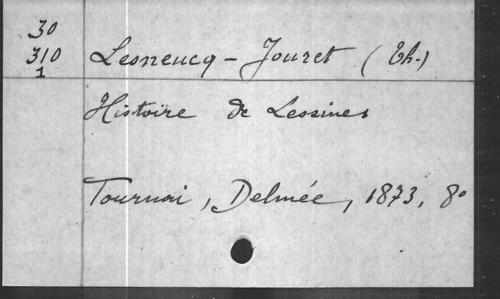 30
310
1
Lesneucq-Jouret (Th.)
Histoire de Lessines
Tournai, Delmée, 1873, 8º